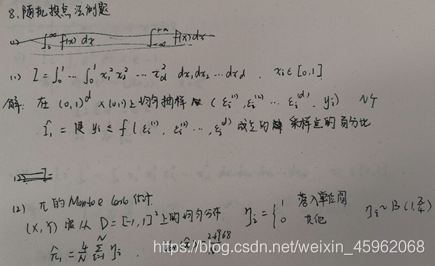 8. 随机投点法例题
(1) ∫₀^∞ f(x) dx   ∫₋∞^+∞ f(x) dx
(1) I = ∫₀¹ ⋯ ∫₀¹ x₁² x₂² ⋯ x_d² dx₁dx₂ ⋯ dx_d , x_i ∈ [0,1]
解: 在 (0,1)^d × (0,1) 上均匀抽样 (ξ_i^(1), ξ_i^(2) ⋯ ξ_i^(d), y_i) N个
Î₁ = 使 y_i ≤ f(ξ_i^(1), ξ_i^(2) ⋯, ξ_i^(d)) 成立的 采样点的百分比
(2) π 的 Monte Carlo 估计
(X, Y) 服从 D = [-1, 1]² 上的均匀分布 η_i = { 1 落入单位圆
0 其他 η_i ~ B(1,
π̂₁ = 4/N Σ_{i=1}^N η_i .
https://blog.csdn.net/weixin_45962068